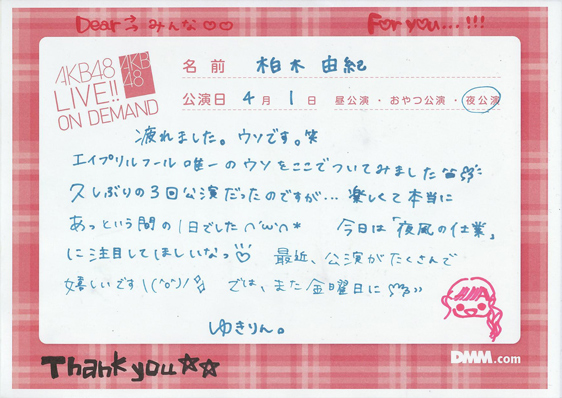 Dear みんな♡♡ For you...!!!
AKB48
LIVE!!
ON DEMAND
AKB
48
名前 柏木由紀
公演日 4月1日 昼公演・おやつ公演・夜公演
疲れました。ウソです。笑
エイプリルフール唯一のウソをここでついてみました
久しぶりの3回公演だったのですが... 楽しくて本当に
あっという間の1日でした(^ω^)* 今日は「夜風の仕業」
に注目してほしいなっ♡ 最近、公演がたくさんで
嬉しいです\(^o^)/ では、また金曜日に
ゆきりん。
Thank you☆☆
DMM.com